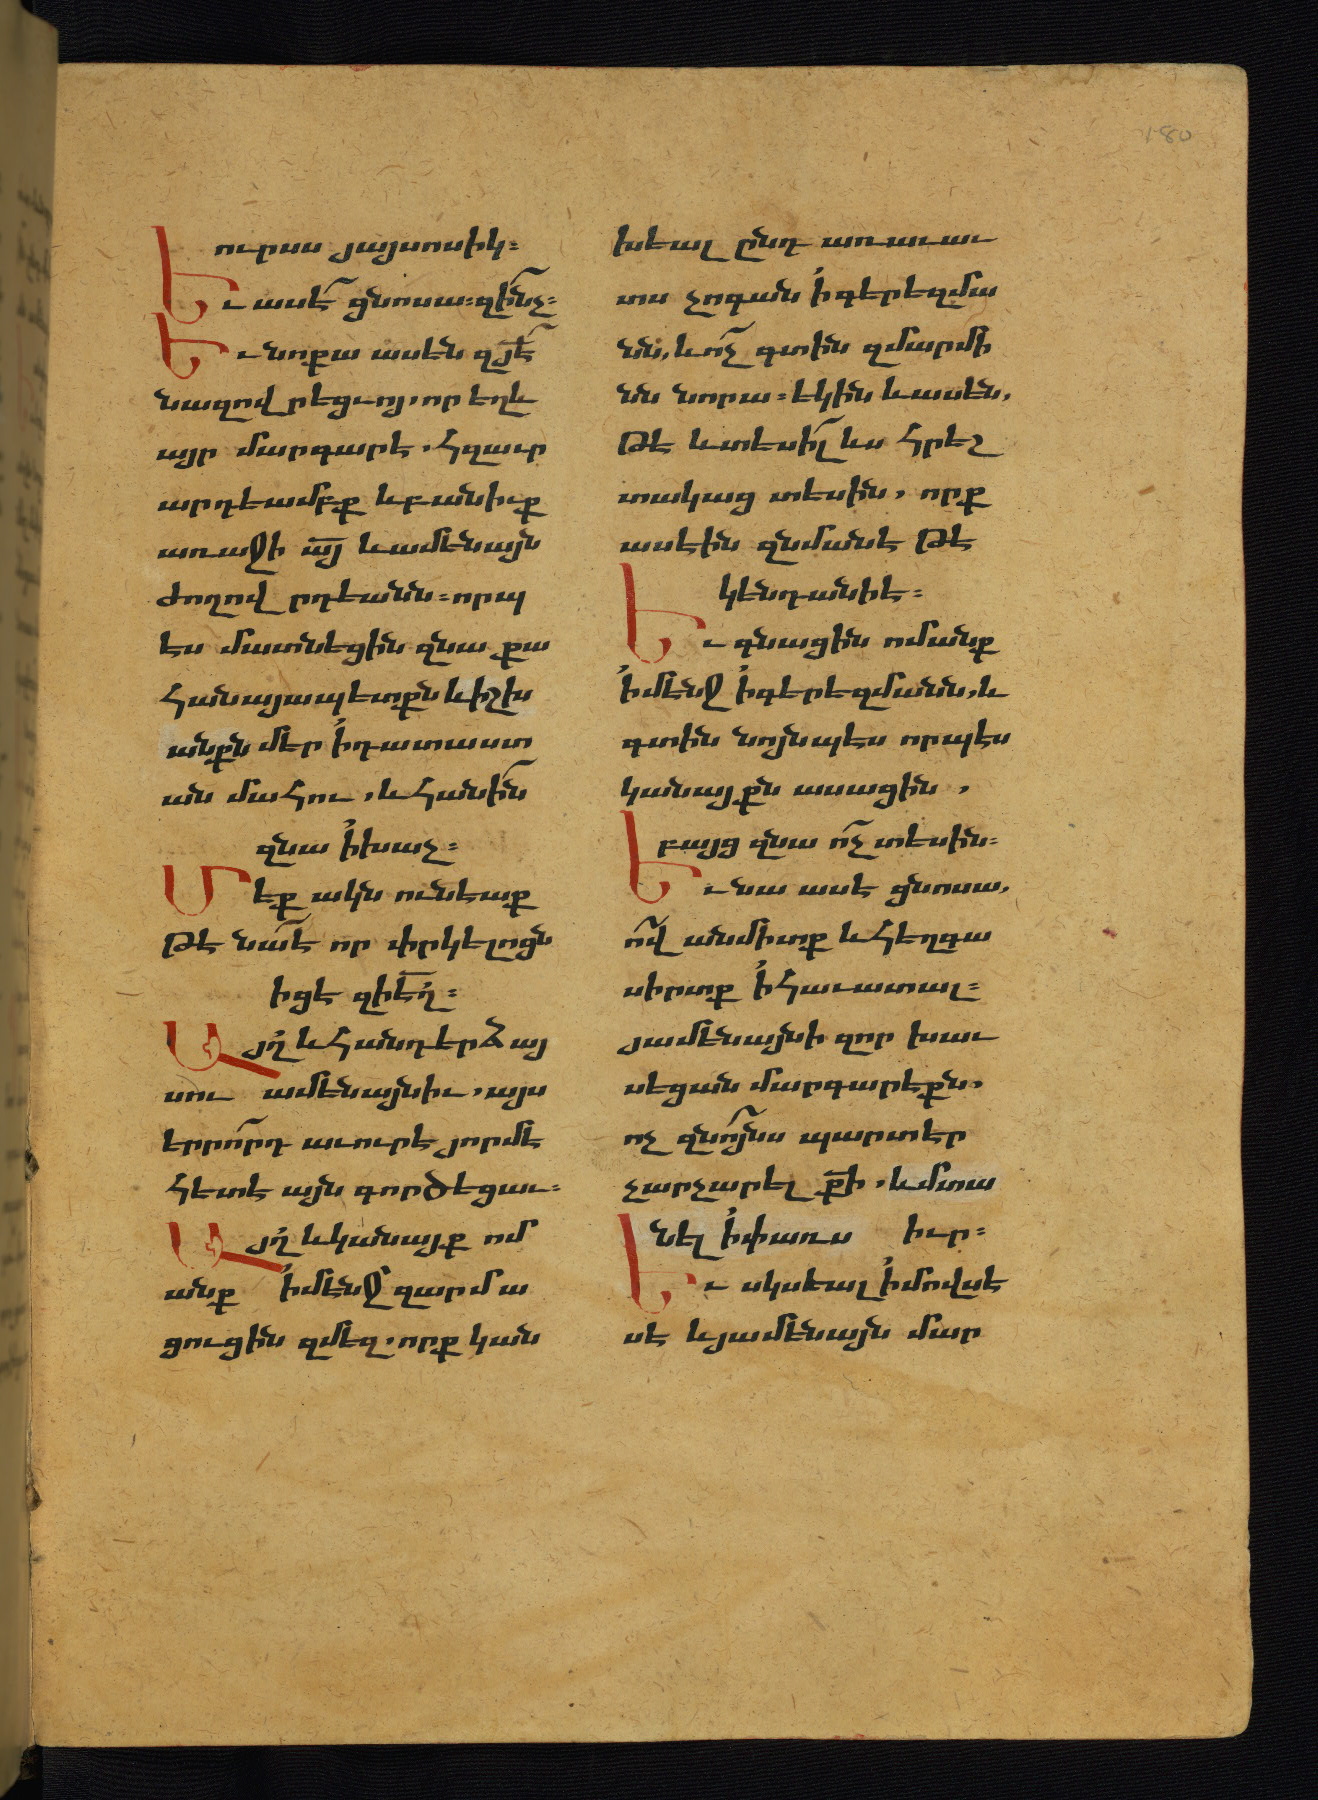 180
ուրսս յայսոսիկ։
Եւ ասէ՜ ցնոսա։ զի՞նչ։
Եւ նոքա ասեն զյ՟ե
նազովրեցւոյ. որ եղև
այր մարգարէ. հզաւր
արդեամբք և բանիւք
առաջի ա՟յ և ամենայն
ժողովրդեանն։ որպ
ես մատնեցին զնա քա
հանայապետքն և իշխ
անքն մեր ի դատաստ
ան մահու. և հանի՜ն
զնա ի խաչ։
Մեք ակն ունեաք
թէ նա՜ է որ փրկելոցն
իցէ զի՟ե՟ղ։
Այղ և հանդերձ այ
սու ամենայնիւ. այս
երրո՜րդ աւուր է յորմէ
հետէ այն գործեցաւ։
Այղ և կանայք ոմ
անք ի մէնջ զարմա
ցուցին զմեզ. որք կան
խեալ ընդ առաւաւ
տս չոգան ի գերեզմա
նն. և ո՜չ գտին զմարմի
նն նորա։ եկին և ասեն.
Թէ և տեսի՜լ ևս հրեշ
տակաց տեսին. որք
ասէին զնմանէ թէ
կենդանի է։
Եւ գնացին ոմանք
ի մէնջ ի գերեզմանն. և
գտին նոյնպէս որպէս
կանայքն ասացին.
բայց զնա ո՜չ տեսին։
Եւ նա ասէ ցնոսա.
ո՜վ անմիտք և հեղգա
սիրտք ի հաւատալ։
յամենայնի զոր խաւ
սեցան մարգարէքն.
ոչ զնո՜յնս պարտ էր
չարչարել ք՟ի. և մտա
նել ի փառս իւր։
Եւ սկսեալ ի մովսե
սէ և յամենայն մար